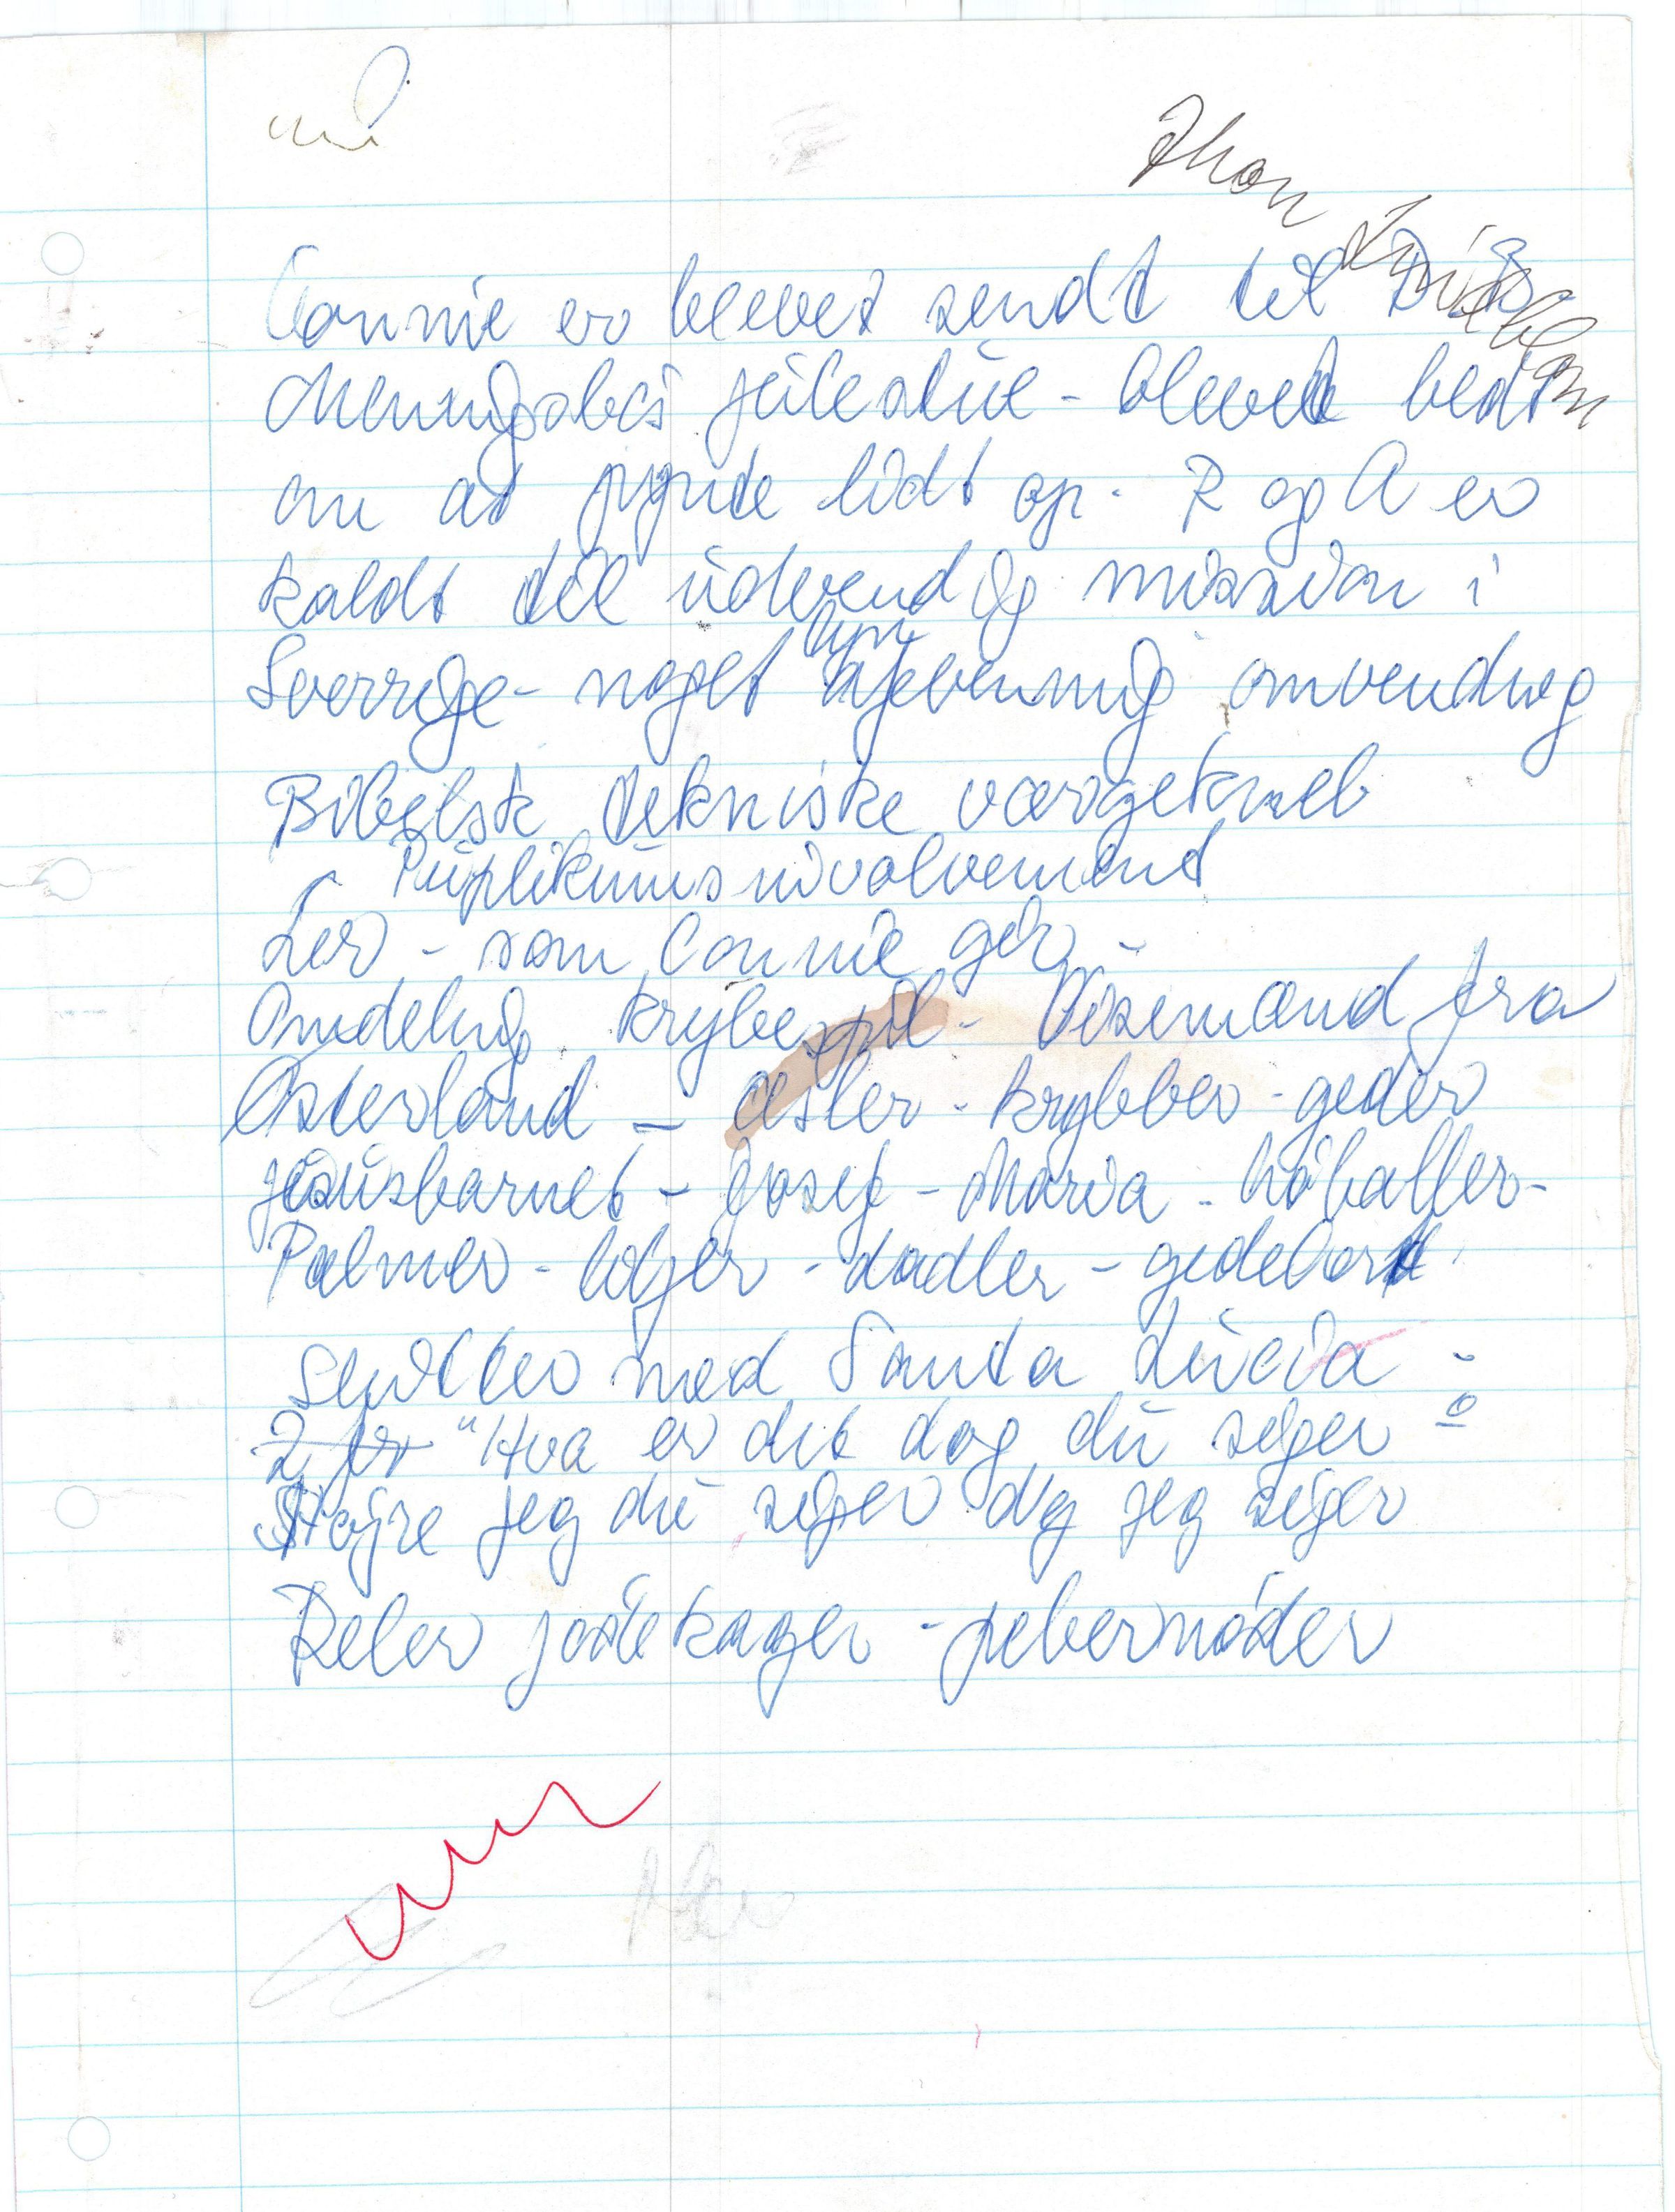 Connie er blevet sendt til
Menighedens julestue - blevet bedt
om at pynte lidt op. R og A er
kaldt til udvendig mission i
Sverrige - noget
åbenning omvending
Bibelsk tekniske værgekneb
Puplikumsinvolvement
Ler - som Connie gør -
Omdeling krybespil - Visemænd fra
Østerland - æsler - krybber - geder
jesusbarnet - Josef - Maria - höballer -
Palmer - - dadler -
Slutter med Santa Lucia -
2 "Hva er det dog du siger
Højre jeg du siger dig jeg siger
Deler julekager - pebernødder